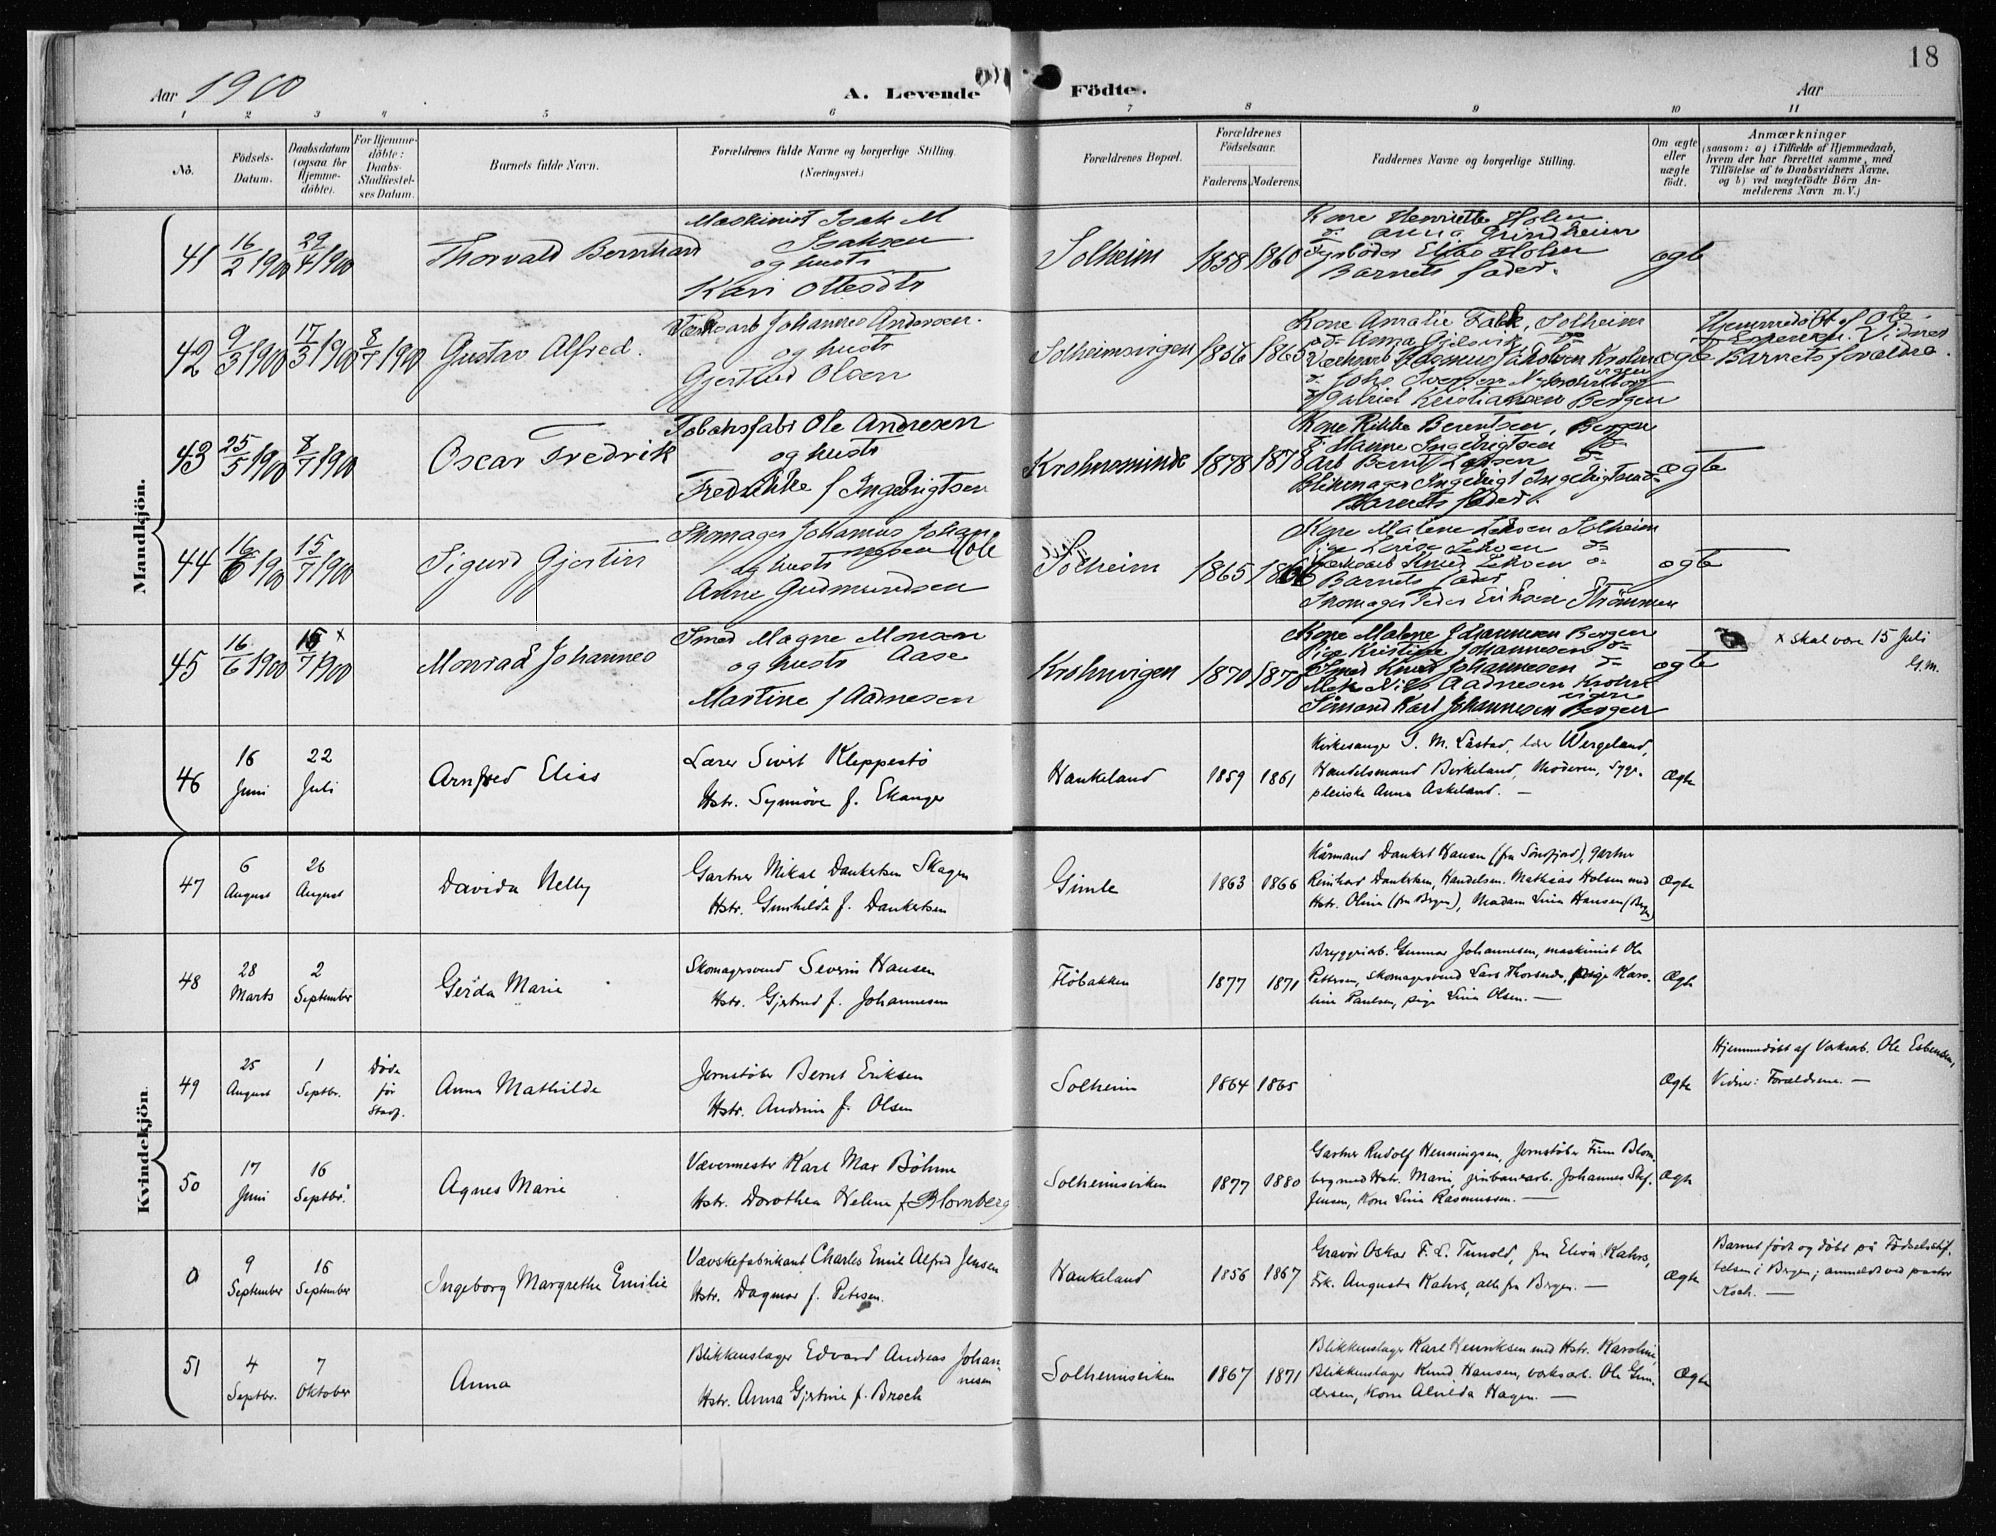 18
Aar 1900
A. Levende Födte.
Aar
1 2 3 4 5 6 7 8 9 10 11
No.
Födsels-Datum.
Daabsdatum (ogsaa for Hjemme-döbte).
For Hjemme-döbte: Daabs-Stadfæstel-ses Datum.
Barnets fulde Navn.
Forældrenes fulde Navne og borgerlige Stilling. (Næringsvei.)
Forældrenes Bopæl.
Forældrenes Födselsaar.
Faderens. Moderens.
Faddernes Navne og borgerlige Stilling.
Om ægte eller uægte födt.
Anmærkninger
(saasom: a) i Tilfælde af Hjemmedaab, hvem der har forrettet samme, med Tilföielse af to Daabsvidners Navne, og b) ved uægtefödte Börn Anmelderens Navn m. V.)
Mandkjön.
41 16/2 1900 29/4 1900 Thorvald Bernhard
Maskinist Isak M
Isaksen
og hust
Kari Ottesdtr
Solheim 1858 1860
Kone Henriette Holen
do Anna Grindheim
Fyrböder Elias Holen
Barnets fader.
ægte
42 9/3 1900 17/3 1900 8/7 1900 Gustav Alfred.
Værksarb Johannes Andersen.
og hust
Gjertrud Olsen
Solheimsvigen 1856 1865
Kone Amalie Falk, Solheim
Gabriel Kristiansen Bergen
ægte
Hjemmedöbt af Ole
Espensen. Vidner
Barnets forældre.
43 25/5 1900 8/7 1900 Oscar Fredrik
Tobaksfabr Ole Andresen
og hust
Fredrikke f Ingebrigtsen
Krohnsminde 1878 1878
Kone Rikke Berentsen, Bergen
do Hanne Ingebrigtsen do
Arb Bernt Larsen do
Blikmager Ingebrigt Ingebrigtsen do
Barnets fader.
ægte
44 16/6 1900 15/7 1900 Sigurd Gjertin
Skomager Johannes Johan
nessen Hole
og hust
Anne Gudmundsen
Solheim 1865 1866
Kone Malene Lekven Solheim
Pige Lovise Lekven do
Værksarb Knud Lekven do
Barnets fader
Skomager Peder Eriksen Strömmen
ægte
45 16/6 1900 15/7 1900 x Monrad Johannes
Smed Magne Monsen
og hust Aase
Martine f Aadnesen
Krohnvigen 1870 1870
Kone Malene Johannesen Bergen
Pige Kristine Johannesen do
Smed Knud Johannesen do
Mek Nils Aadnesen Krohn
vigen
Sömand Karl Johannesen Bergen
ægte
x skal være 15 Juli
G.m.
46 16 Juni 22 Juli Arnfred Elias
Lærer Sivert Kleppestö
Hstr. Synnöve f. Ekanger
Haukeland 1859 1861
Kirkesanger S. M. Låstad, lærer Wergeland,
Handelsmand Birkeland, Moderen, Syge-
pleierske Anna Askeland. —
Ægte
Kvindekjön
47 6 August 26 August Davida Nelly
Gartner Mikal Dankertsen Skagen
Hstr. Gunhilde f. Dankertsen
Gimle 1863 1866
Kårmand Dankert Hansen (fra Söndfjord), gartner
Reinhard Dankertsen, Handelsm. Mathias Holsen med
Hstr. Olina (fra Bergen), Madam Lina Hansen (Bergen)
Ægte
48 28 Marts 2 September Gerda Marie
Skomagersvend Severin Hansen
Hstr. Gjertrud f. Johannesen
Flöbakken 1877 1871
Bryggeriarb. Gunnar Johannesen, maskinist Ole
Pettersen, Skomagersvend Lars Thorsnes, pige Karo-
line Paulsen, pige Lina Olsen. —
Ægte
49 25 August 1 Septbr. Döde för Stadf. Anna Mathilde
Jernstöber Bernt Eriksen
Hstr. Andrine f. Olsen
Solheim 1864 1865
Ægte
Hjemmedöbt af Værksarb. Ole Esbensen,
Vidner: Forældrene. —
50 17 Juni 16 Septbr. Agnes Marie
Vævermester Karl Max Böhme
Hstr. Dorothea Helene f. Blomberg
Solheimsviken 1877 1880
Gartner Rudolf Henningsen, Jernstöber Finn Blom-
berg med Hstr. Marie, jernbanearb. Johannes Stef-
fensen, Kone Lina Rasmussen. —
Ægte
0 9 September 16 September Ingeborg Margrethe Emilie
Vævskefabrikant Charles Emil Alfred Jensen
Hstr. Dagmar f. Petersen.
Haukeland 1856 1867
Gravör Oskar F. L. Tunold, fru Elisa Kahrs,
Frk. Augusta Kahrs, alle fra Bergen. —
Ægte
Barnet födt og döbt på Födselsstif-
telsen i Bergen; anmeldt ved pastor
Koch. —
51 4 Septbr. 7 Oktober Anna
Blikkenslager Edvard Andreas Johan-
nesen
Hstr. Anna Gjertine f. Broch
Solheimsviken 1867 1871
Blikkenslager Karl Henriksen med Hstr. Karoline,
Blikkenslager Knud Hansen, værksarb. Ole Gun-
dersen, Kone Alvilda Hagen. —
Ægte